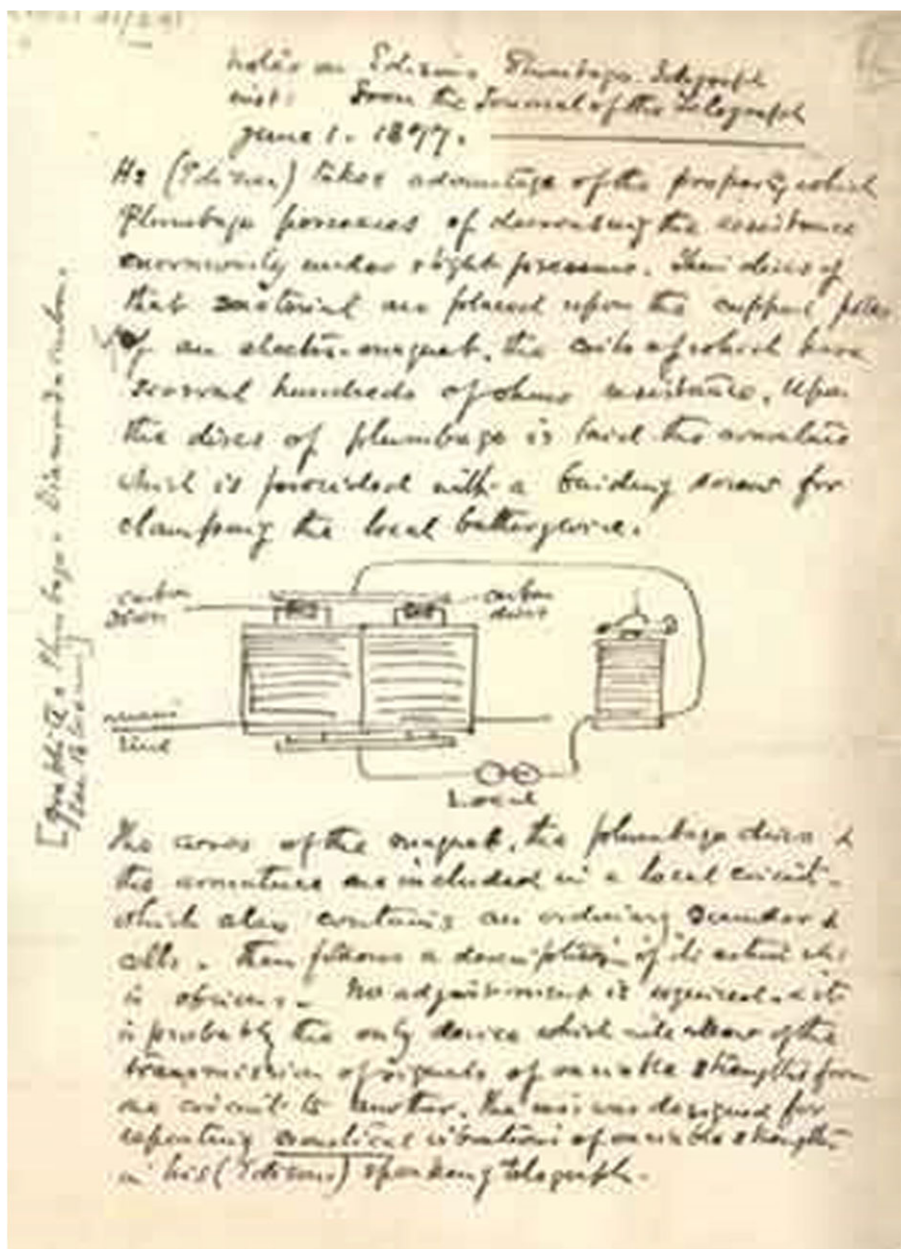 Notes on Edison's Plumbago Telegraph
inst: From the Journal of the Telegraph
June 1. 1877.
He (Edison) takes advantage of the property which
Plumbago possesses of decreasing the resistance
enormously under slight pressure. Thin discs of
that material are placed upon the cupped poles
of an electro-magnet, the coils of which have
several hundreds of ohms resistance. Upon
the discs of plumbago is laid the armature
which is provided with a binding screw for
clamping the local battery wire.
carbon
discs
carbon
discs
main
line
Local
[graphite = Plumbago =
The cores of the magnet, the plumbago discs &
the armature are included in a local circuit
which also contains an ordinary sounder &
cells. Then follows a description of its action
is obvious. No adjustment is required & it
is probably the only device which will allow of the
transmission of signals of variable strengths from
one circuit to another. The was designed for
repeating acoustical vibrations of variable strength
in his (Edison's) speaking telegraph.